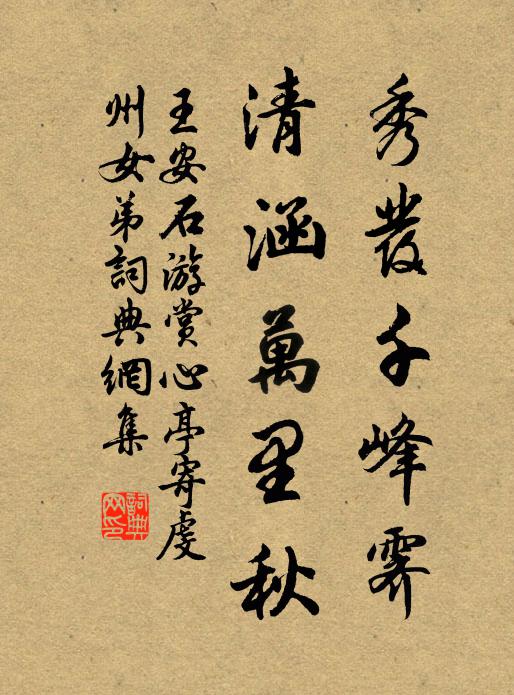 秀發千峰霽
清涵萬里秋
王安石游賞心亭寄虔
州女弟詞典網集
詞典網印